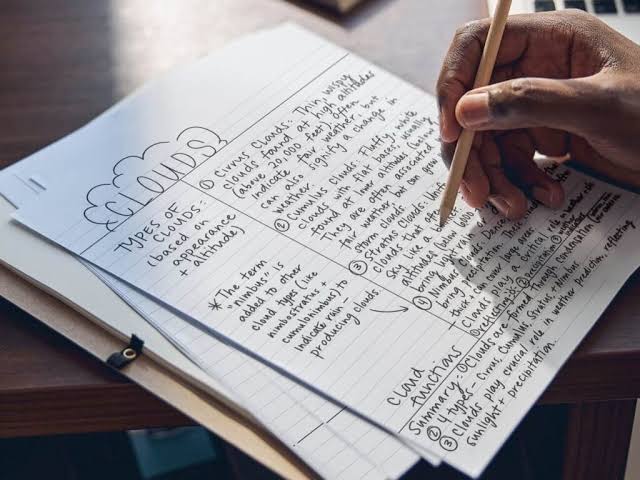 CLOUDS
TYPES OF
CLOUDS:
(based on
appearance
+ altitude)
* The term
"nimbus" is
added to other
cloud types (like
nimbostratus +
cumulonimbus) to
indicate rain-
producing clouds.
① Cirrus Clouds: Thin, wispy
clouds found at high altitudes
(above 20,000 feet). Often
indicate fair weather, but
can also signify a change in
weather.
② Cumulus Clouds: Fluffy, white
clouds with flat bases, usually
found at lower altitudes (below
They are often associated
fair weather but can grow
storm clouds.
③ Stratus Clouds:
clouds that often
sky like a
altitudes (below
bring light
④ Nimbus
bring
thick
over large areas
cloud
functions
Clouds play a critical role in
① reflecting
② precipitation
Summary: ① Clouds are formed through condensation
② 4 types - Cirrus, Cumulus, Stratus, + Nimbus
③ Clouds play crucial role in weather prediction, reflecting
sunlight + precipitation.